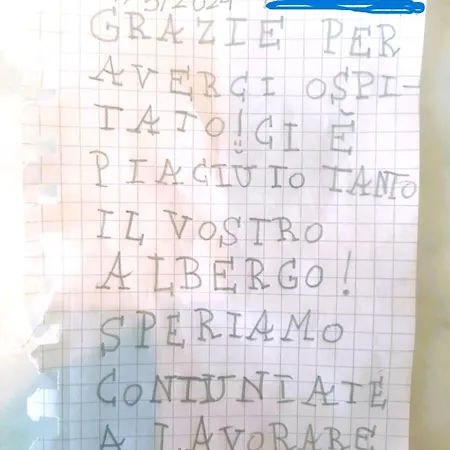 /3/2024
GRAZIE PER
AVERCI OSPI-
TATO! CI È
PIACIUTO TANTO
IL VOSTRO
ALBERGO!
SPERIAMO
CONTUNIATE
A LAVORARE